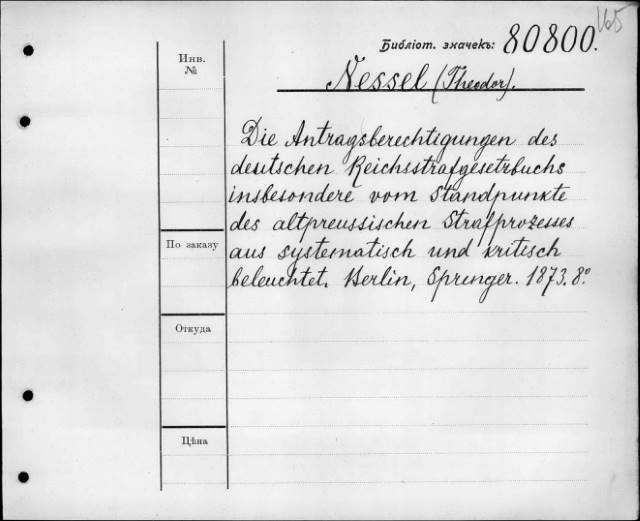 165
Библіот. значекъ: 80800.
Инв.
№
Nessel (Theodor).
Die Antragsberechtigungen des
deutschen Reichsstrafgesetzbuchs
insbesondere vom Standpunkte
des altpreussischen Strafprozesses
По заказу
aus systematisch und kritisch
beleuchtet. Berlin, Springer. 1873. 8º
Откуда
Цѣна